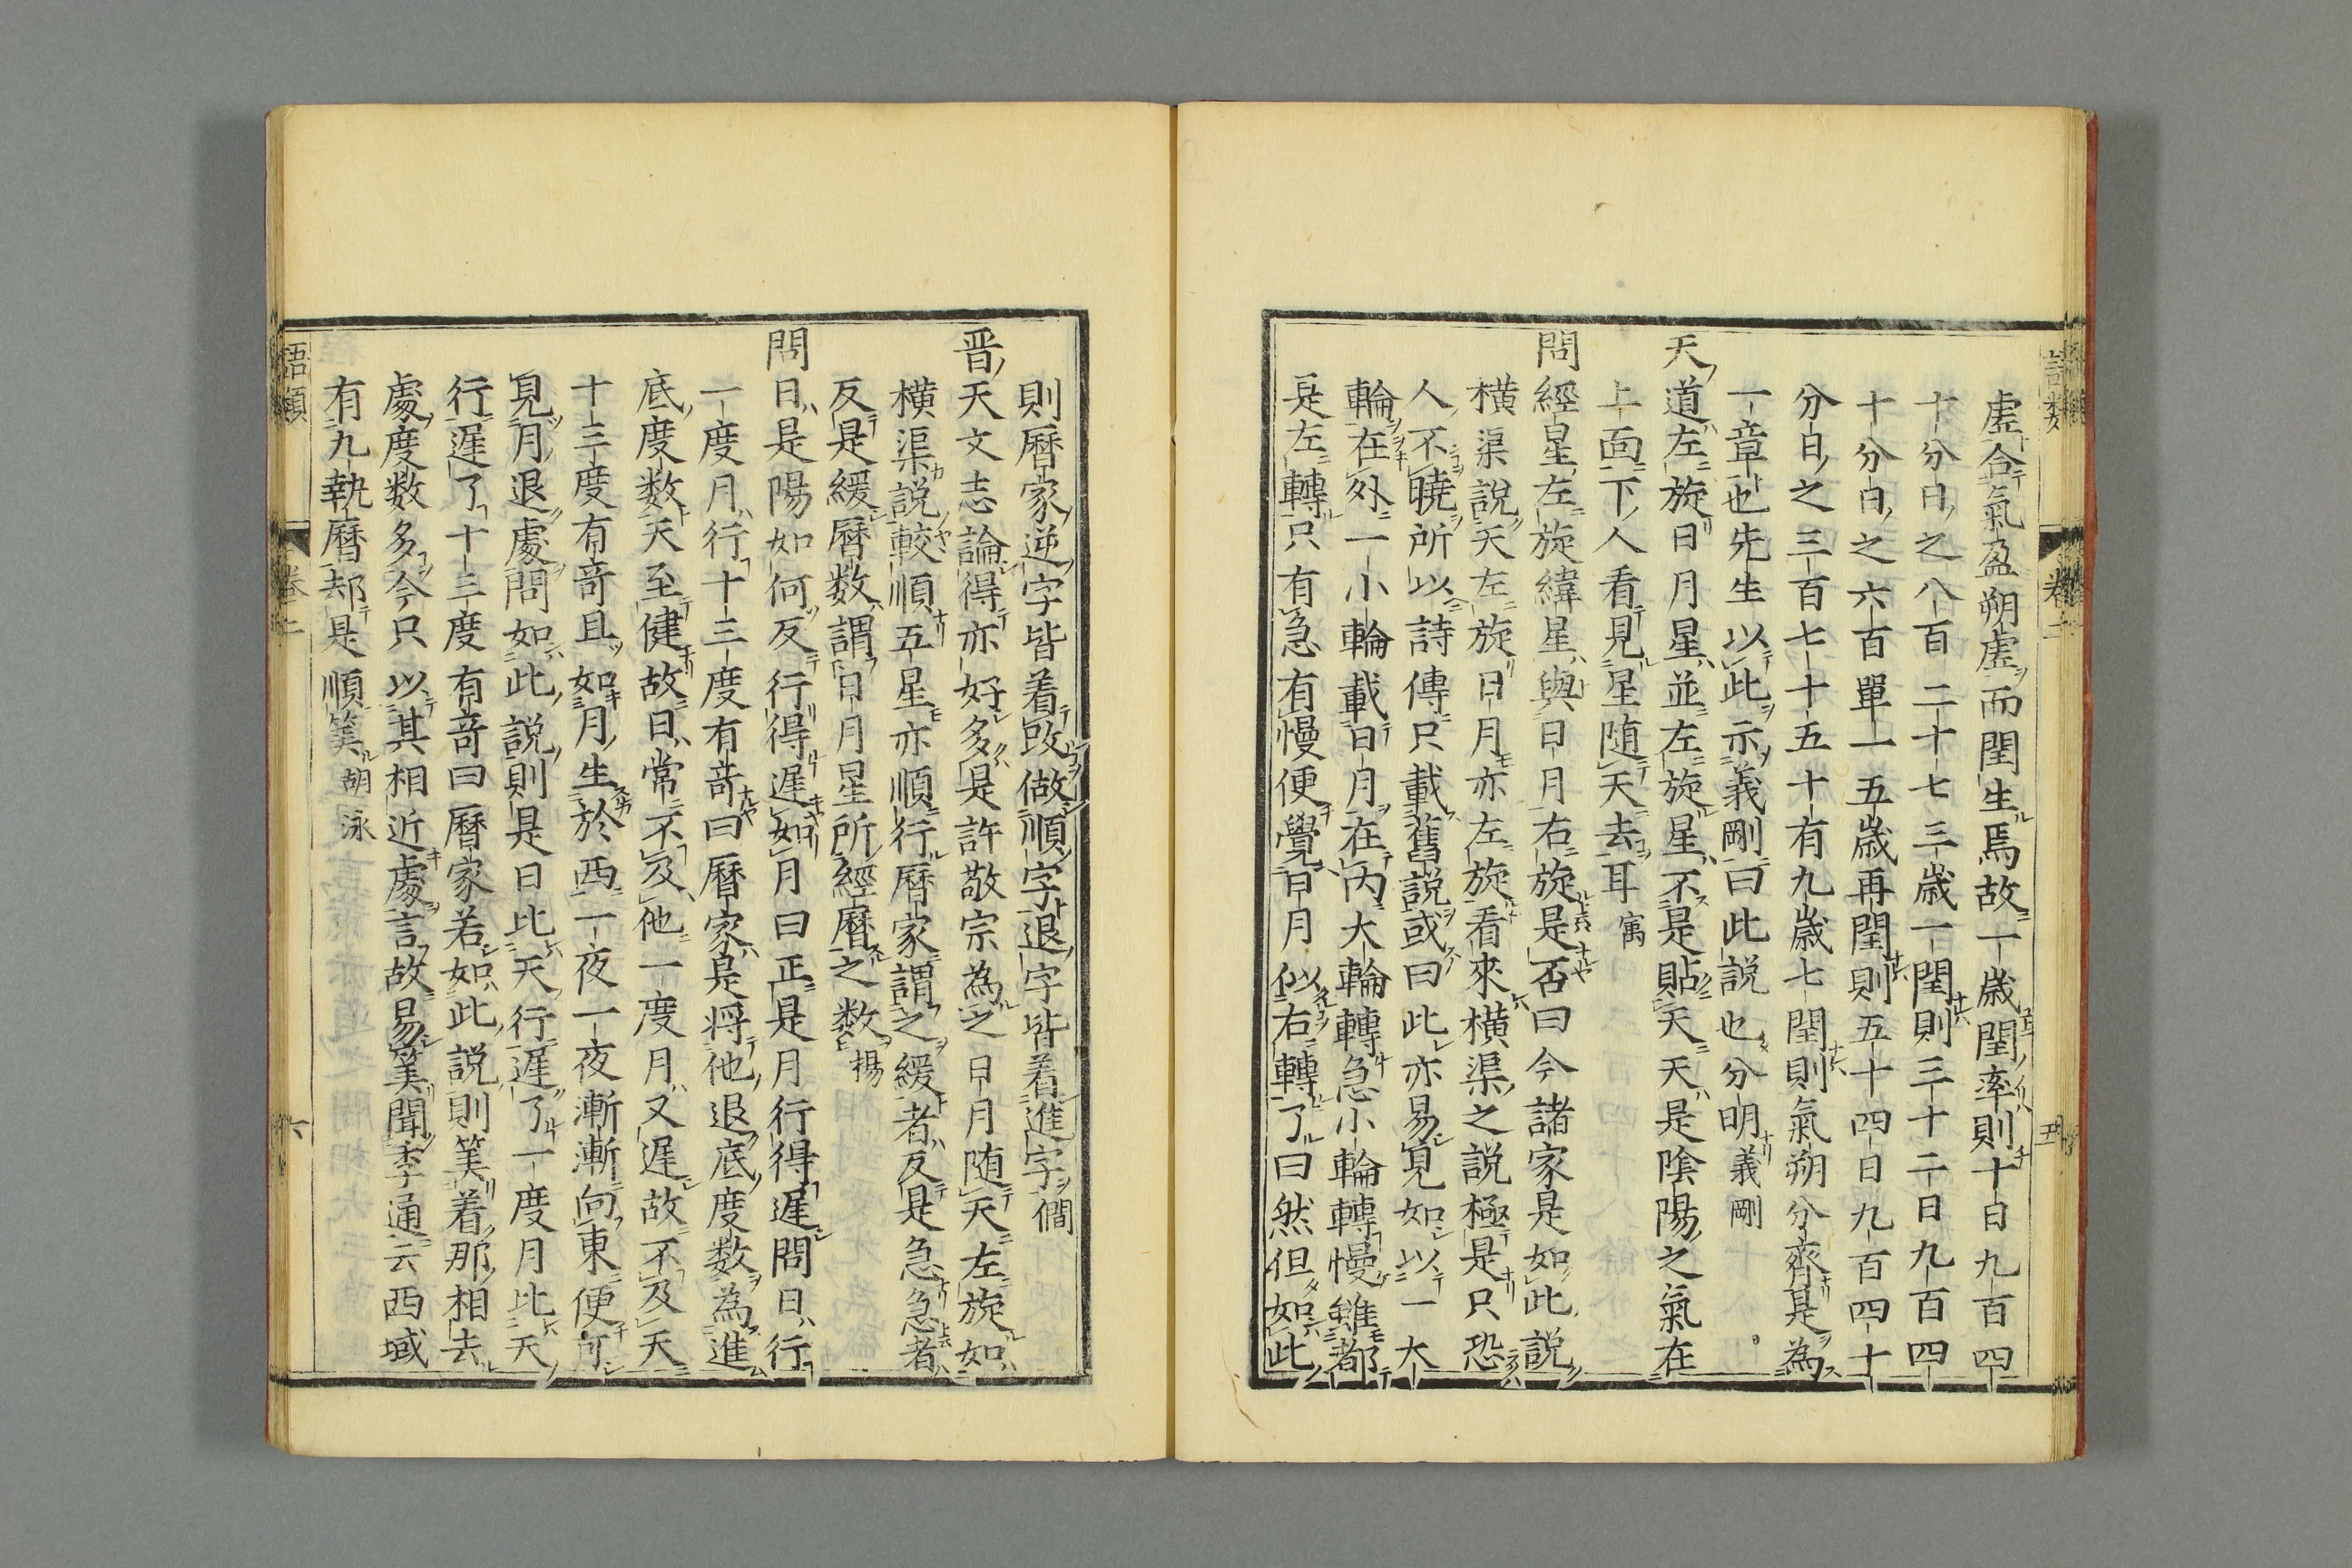 虚合氣盈朔虚而閏生焉故一歳閏率則十日九百四
十分日之八百二十七三歳一閏則三十二日九百四
十分日之六百單一五歳再閏則五十四日九百四十
分日之三百七十五十有九歳七閏則氣朔分齊是為
一章也先生以此示義剛曰此説也分明義剛
天道左旋日月星並左旋星不是貼天天是陰陽之氣在
上面下人看見星随天去耳寓
問經星左旋緯星與日月右旋是否曰今諸家是如此説
横渠説天左旋日月亦左旋看來横渠之説極是只恐
人不曉所以詩傳只載舊説或曰此亦易見如以一大
輪在外一小輪載日月在内大輪轉急小輪轉慢雖都
是左轉只有急有慢便覺日月似右轉了曰然但如此
則曆家逆字皆着改做順字退字皆着進字僩
晋天文志論得亦好多是許敬宗為之日月随天左旋如
横渠説較順五星亦順行曆家謂之緩者反是急急者
反是緩曆数謂日月星所經曆之数揚
問日是陽如何反行得遲如月曰正是月行得遲問日行
一度月行十三度有竒曰曆家是将他退底度数為進
底度数天至健故日常不及他一度月又遲故不及天
十三度有竒且如月生於西一夜一夜漸漸向東便可
見月退處問如此説則是日比天行遲了一度月比天
行遲了十三度有竒曰曆家若如此説則筭着那相去
處度数多今只以其相近處言故易筭聞季通云西域
有九執曆却是順筭胡泳
語類
卷二
六
卷二
五